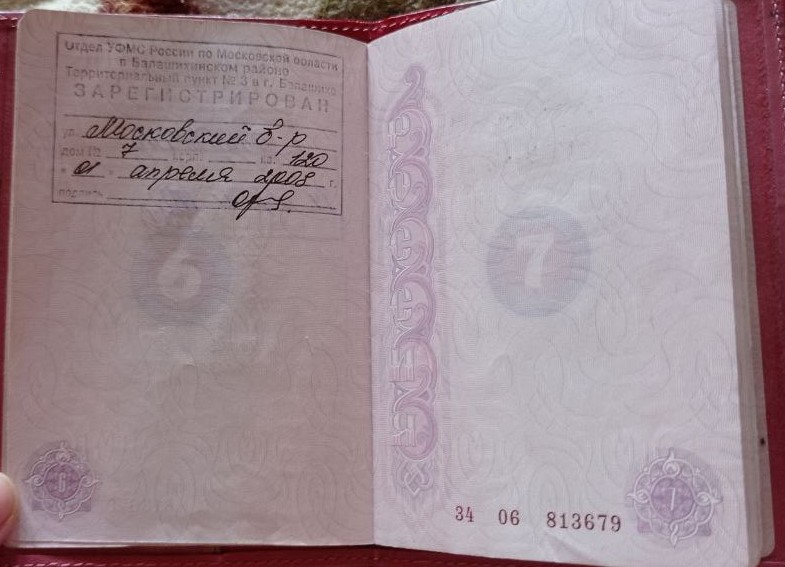 Отдел УФМС России по Московской области
в Балашихинском районе
Территориальный пункт № 3 в г. Балашихе
ЗАРЕГИСТРИРОВАН
ул. Московский б-р
дом № 7 корп. кв. 120
" 01 " апреля 2008 г.
подпись
6
6
РОССИЯ
7
34 06 813679
7